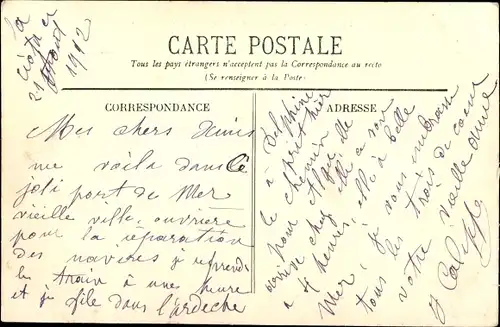 la
Ciotat
21 Aout
1912
CARTE POSTALE
Tous les pays étrangers n'acceptent pas la Correspondance au recto
(Se renseigner à la Poste)
CORRESPONDANCE
Mes chers Amis
me voila dans le
joli port de Mer
vieille ville, ouvrière
pour la réparation
des navires je reprends
le train a une heure
et je file dans l'ardeche
ADRESSE
à Delphine
a pris hier
le chemin
pour Alger elle
arrive chez elle ce soir
a 4 heures, elle à belle
Mer, je vous embrasse
tous les trois de coeur
votre vieille amie